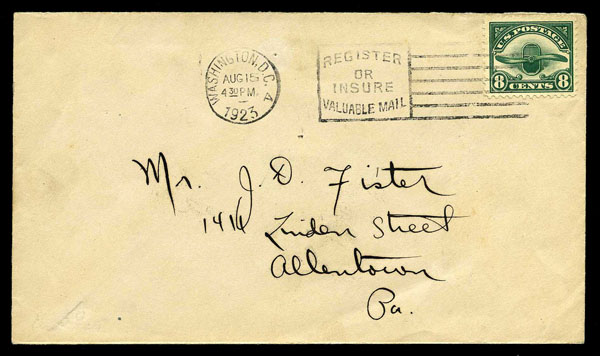 WASHINGTON, D.C. A
AUG 15
4 30 PM
1923
REGISTER
OR
INSURE
VALUABLE MAIL
U.S. POSTAGE
8 8
CENTS
Mr. J. D. Fister
Linden Street
Allentown
Pa.